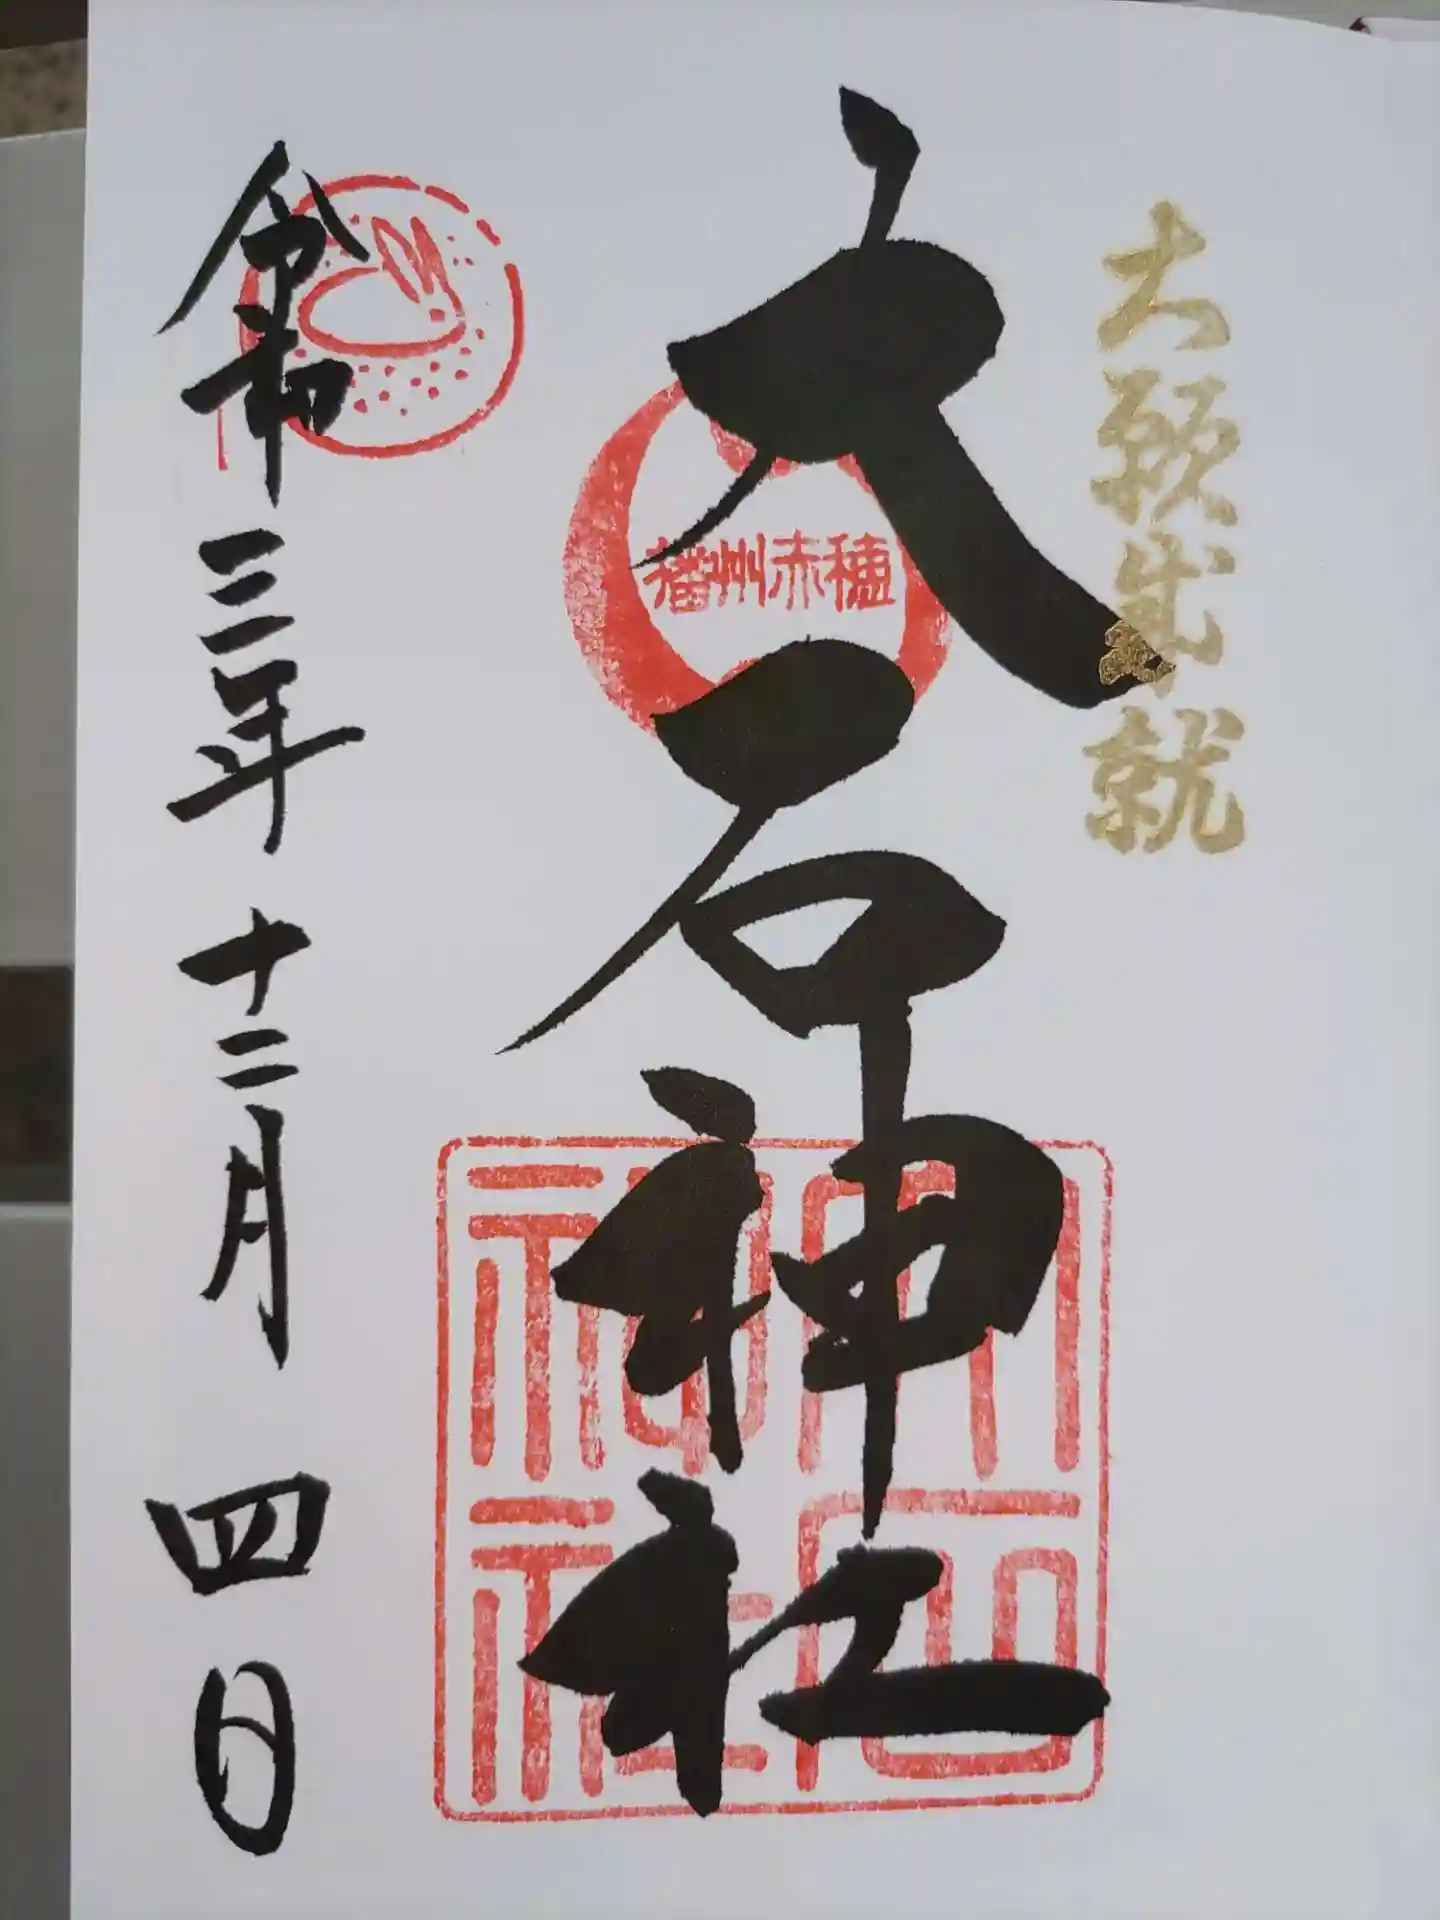 大願成就
大石神社
播州赤穂
大石神社
令和三年十二月四日